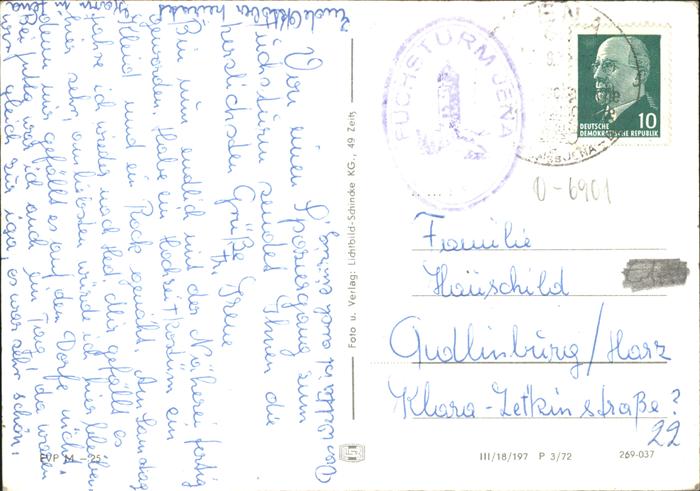 Von einem Spaziergang zum
Fuchsturm sendet Ihnen die
herzlichsten Grüße Irene
Bin nun endlich mit der Näherei fertig
geworden. Habe ein Hochzeitkostüm ein
Kleid und ein Rock genäht. Am Samstag
fahre ich wieder nach Hed. Mir gefällt es
hier sehr, am liebsten würde ich hier bleiben,
denn mir gefällt es auf dem Dorfe nicht.
Bei Jutta war ich auch ein Tag, da waren
wir gleich zur iga es war sehr schön.
Ende Oktober heiratet
FUCHSTURM JENA
JENA
DEUTSCHE
DEMOKRATISCHE REPUBLIK
10
0-6901
Familie
Hauschild
Qudlinburg/Harz
Klara-Zetkinstraße?
22
Foto u. Verlag: Lichtbild-Schincke KG., 49 Zeitz
EVP M -.25
III/18/197 P 3/72
269-037